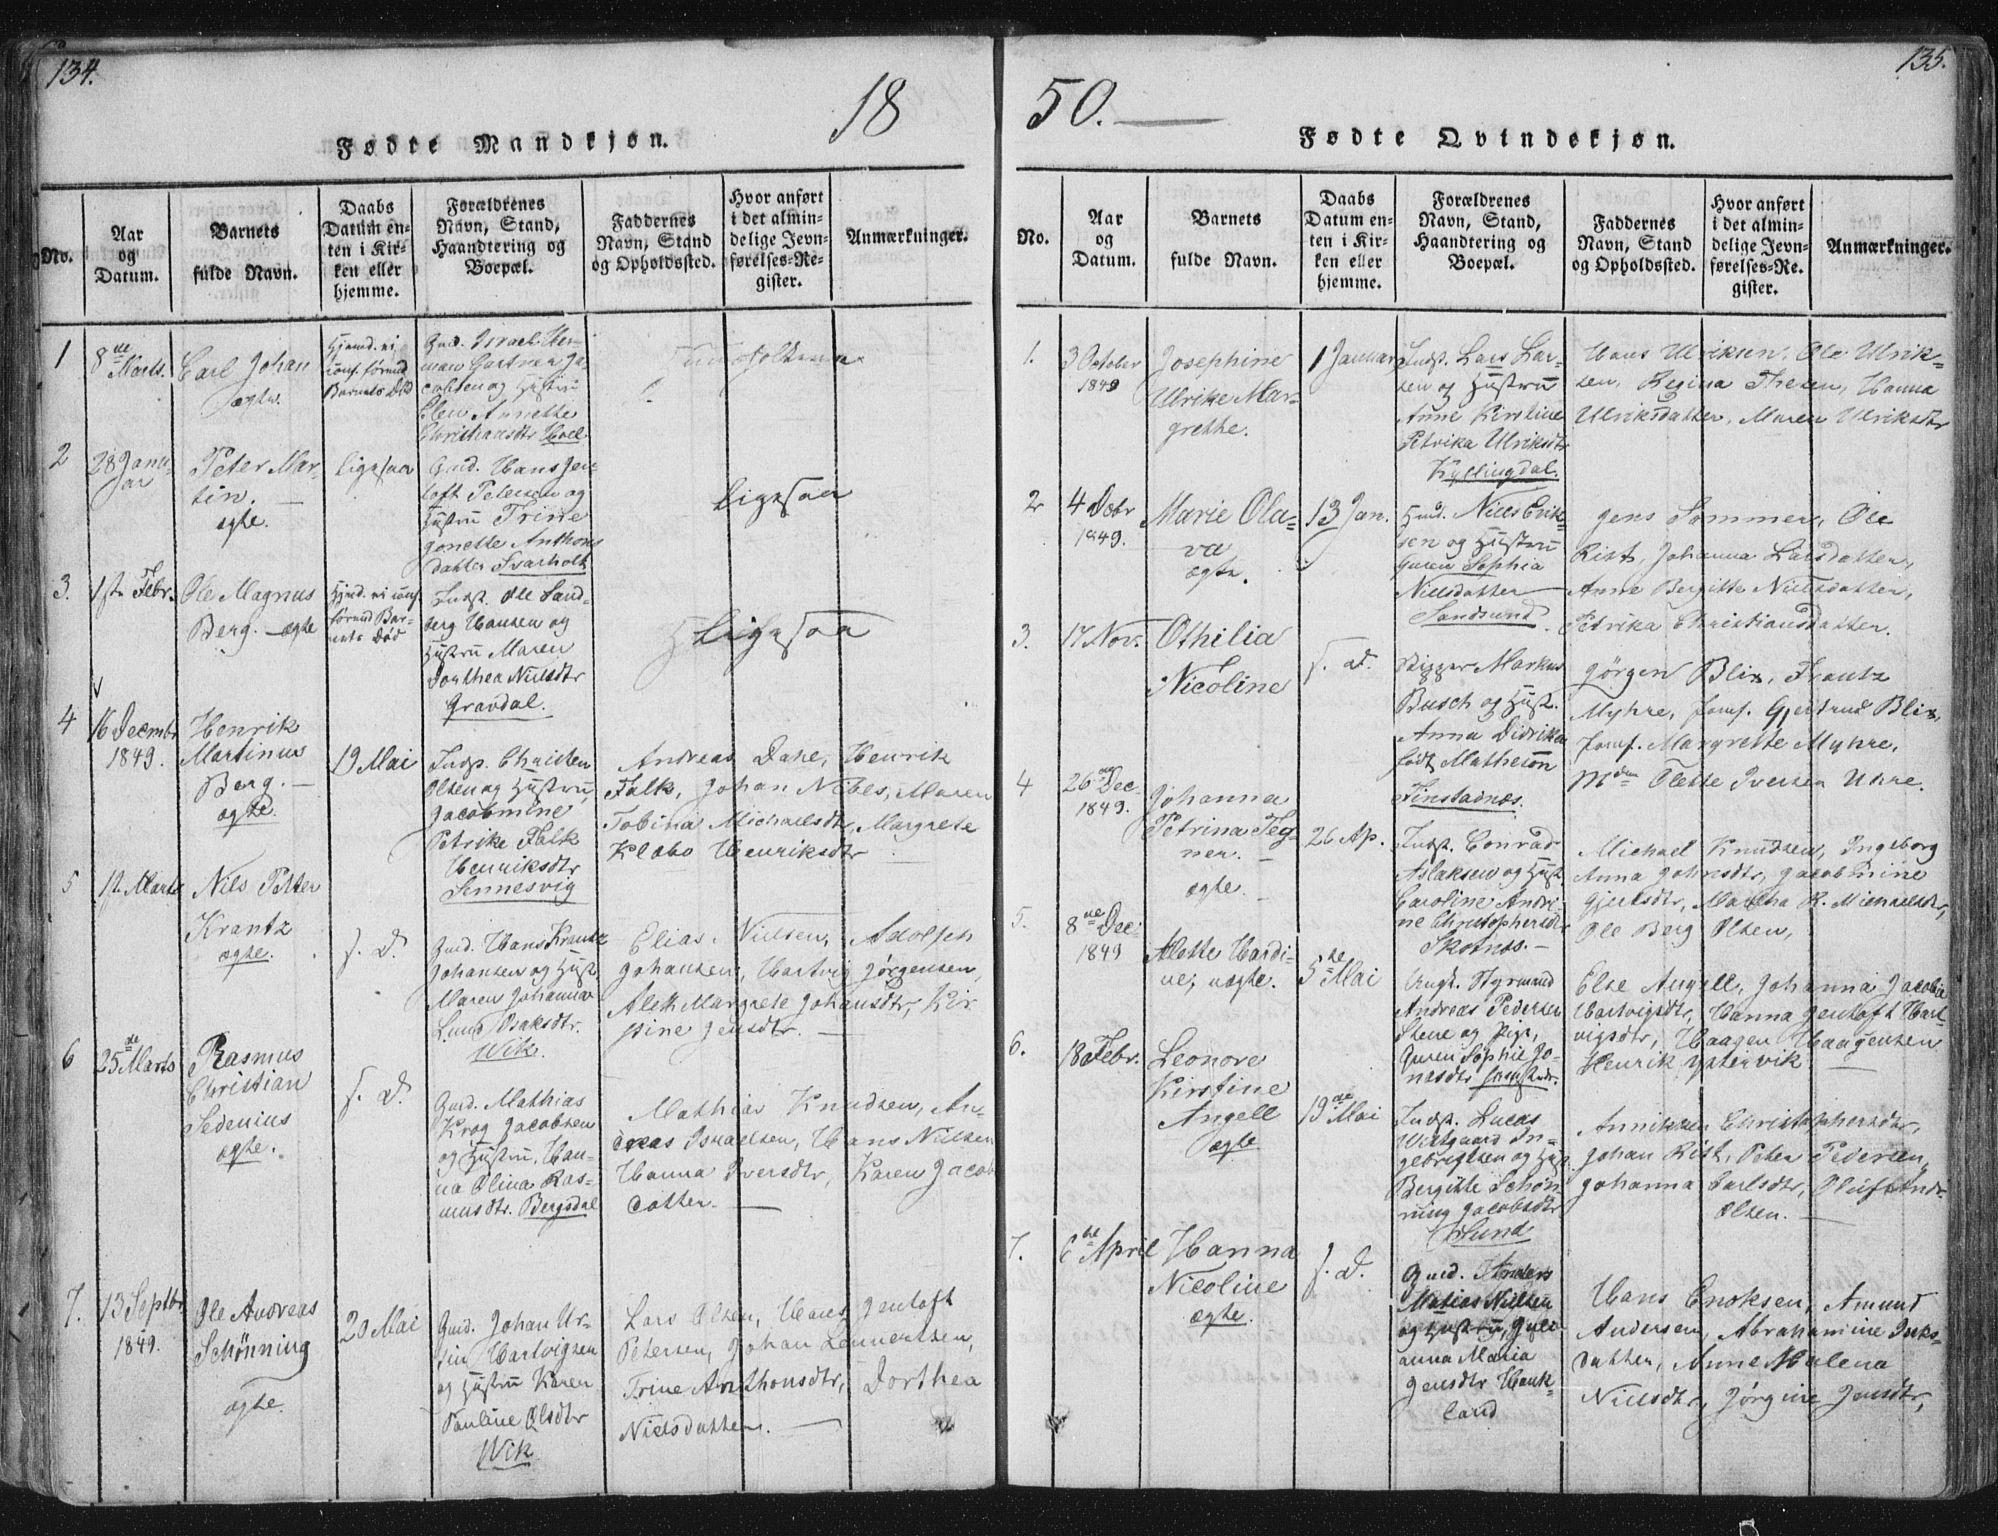 134.
18
Fødte Mandkjøn.
No.
Aar
og
Datum.
Barnets
fulde Navn.
Daabs
Datum en-
ten i Kir-
ken eller
hjemme.
Forældrenes
Navn, Stand,
Haandtering og
Boepæl.
Faddernes
Navn, Stand
og Opholdssted.
Hvor anført
i det almin-
delige Jevn-
førelses-Re-
gister.
Anmærkninger.
1
8de
Marts.
Carl Johan
ægte.
Hjemd. ei
conf. førend
Barnets Død
Gmd. Israel Her-
man Gartner Ja-
cobsen og Hustru
Elen Annette
Christiansdtr Hoel.
2
28 Janu-
ar
Peter Mar-
tin.
ægte.
ligesaa
Gmd. Hans Jen-
toft Petersen og
Hustru Trine
Jonette Anthons
datter Svarholt
ligesaa
3.
1ste Febr.
Ole Magnus
Berg. ægte
Hjmd. ei conf.
førend Bar-
nets Død
Indst. Ole Sand-
berg Hansen og
Hustru Maren
Dorthea Nielsdtr
Gravdal.
Ligesaa
4
16 Decembr
1849.
Henrik
Martinus
Berg.
ægte.
19 Mai
Indst. Christen
Olsen og Hustru
Jacobmine
Petrike Falk
Henriksdtr
Sennesvig
Andreas Dake, Henrik
Falk, Johan Nibes, Maren
Tobina Michaelsdtr, Margrete
Klabo Henriksdtr
5
12 Marts
Nils Petter
Krantz
ægte.
s. D.
Gmd. Hans Krantz
Johansen og Hust.
Maren Johanna
Lund Isaksdtr.
Wik.
Elias Nielsen, Adolph
Johansen, Hartvig Jørgensen,
Alet Margrete Johansdtr, Kir-
stine Jensdtr.
6
25de Marts
Rasmus
Christian
Sedenius
ægte.
s. D.
Gmd. Mathias
Krog Jacobsen
og Hustru, Han-
na Olina Ras-
musdtr. Bergsdal
Mathias Knudsen, An-
dreas Israelsen, Hans Nielsen
Hanna Iversdtr, Karen Jacob
datter.
7.
13 Septbr
1849.
Ole Andreas
Schønning
ægte.
20 Mai
Gmd. Johan Ur-
sin Hartvigsen
og Hustru Karen
Pauline Olsdtr
Wik
Lars Olsen, Hans Jentoft
Petersen, Johan Lennertsen,
Trine Anthonsdtr, Dorthea
Nielsdatter.
135.
50.
Fødte Qvindekjøn.
No.
Aar
og
Datum.
Barnets
fulde Navn.
Daabs
Datum en-
ten i Kir-
ken eller
hjemme.
Forældrenes
Navn, Stand,
Haandtering og
Boepæl.
Faddernes
Navn, Stand
og Opholdssted.
Hvor anført
i det almin-
delige Jevn-
førelses-Re-
gister.
Anmærkninger.
1.
3 October
1849
Josephine
Ulrike Mar-
grethe.
1 Januar
Indst. Lars Lar-
sen og Hustru
Anne Kirstine
Petrika Ulriksdtr
Kyllingdal.
Hans Ulriksen, Ole Ulrik-
sen, Regina Thesen, Hanna
Ulriksdatter, Maren Ulriksdtr
2
4 Decbr
1849.
Marie Ola-
va
ægte.
13 Jan.
Hmd. Niels Erik-
sen og Hustru
Guren Sophia
Nielsdatter
Sandsund.
Jens Sommer, Ole
Rist, Johanna Larsdatter,
Anne Bergitte Nielsdatter,
Petrika Christiansdatter.
3.
17 Nov.
Othilia
Nicoline
s. D.
Bygger Markus
Busch og Hust.
Anna Didrikea
født Matheson
Finstadnæs.
Jørgen Blix, Frantz
Myhre, Jomf. Gjertrud Blix,
Jomf. Margrette Myhre,
Mdm Olette Iversen Uhre.
4
26de Dec.
1849.
Johanna
Petrina Teg-
ner.
ægte.
26 Ap.
Indst. Conrad
Aslaksen og Hust.
Caroline Andri-
ne Christophersdtr
Skotnæs.
Michael Knudsen, Ingeborg
Anna Johnsdtr, Jacobmine
Gjertsdtr, Martha R. Michaelsdtr,
Ole Berg Olsen,
5.
8de Dec.
1849
Alette Hardi-
ne, uægte.
5te Mai
Ungk. Styrmand
Andreas Pedersen
Stene og Pige,
Guren Sophie Jo-
næsdtr
Else Angell, Johanna Jacobia
Hartvigsdtr, Hanna Jentoft Hart-
vigsdtr, Haagen Haagensen
Henrik Yttervik.
6.
18 Febr.
Leonore
Kirstine
Angell
ægte
19de Mai
Indst. Lucas
Westgaard In-
gebrigtsen og Hust.
Bergitte Schøn-
ning Jacobsdtr
Annikken Christophersdtr,
Johan Rist, Peter Pedersen,
Johanna Carlsdtr,
Olsen.
7.
6te April
Hanna
Nicoline
ægte.
s. D.
Gmd. Anders
Matias Nielsen
og Hustru, Jule-
anna Maria
Jensdtr Hauk-
land
Hans Enoksen, Amund
Andersen, Abrahamine Inks-
datter, Anne Malena
Nielsdtr, Jørgine Jensdtr,